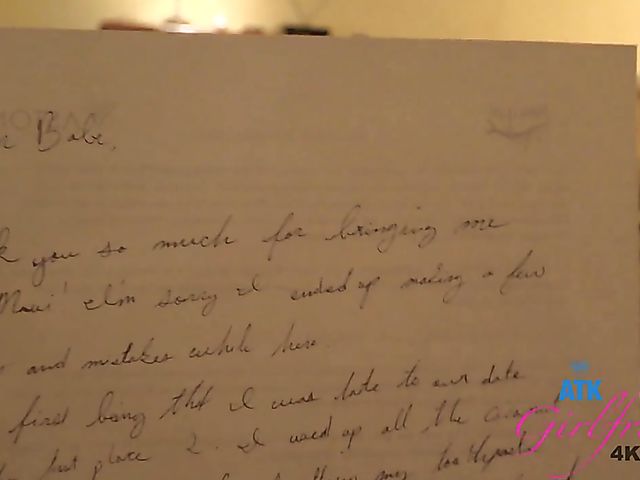 Babe,
you so much for bringing me
Maui! I'm sorry I ended up making a few
and mistakes while here.
first being that I was late to our date
place 2. I used up all the
my toothpaste
ATK
Girlfr
4K